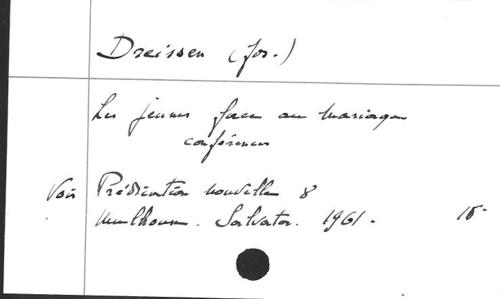 Dreissen (Jos.)
Les jeunes face au mariage
conférences
Voir Prédication nouvelle 8
Mulhouse. Salvator. 1961. 15-